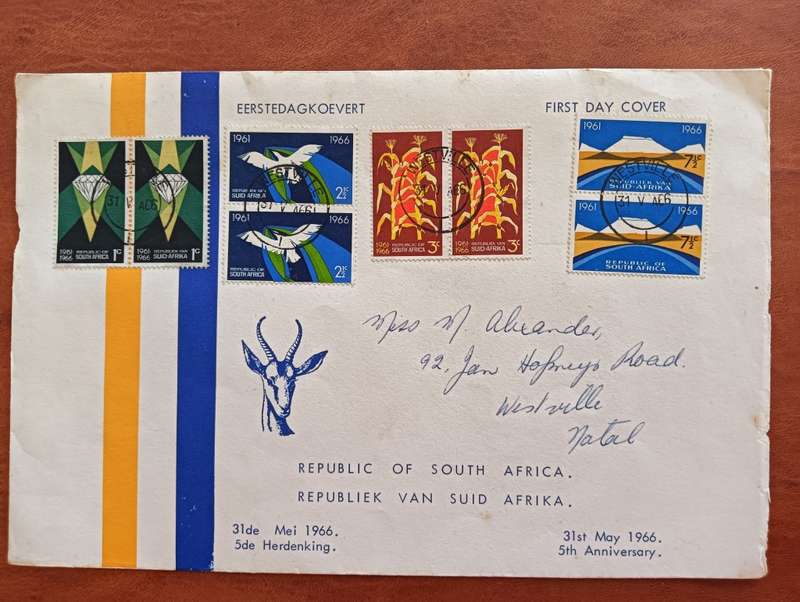 EERSTEDAGKOEVERT
FIRST DAY COVER
1961
1966
REPUBLIC OF
SOUTH AFRICA
1c
1961
1966
REPUBLIEK VAN
SUID-AFRIKA
1c
1961 1966
REPUBLIEK VAN
SUID AFRIKA
2½c
REPUBLIC OF
SOUTH AFRICA
2½c
1961
1966
REPUBLIC OF
SOUTH AFRICA
3c
1961
1966
REPUBLIEK VAN
SUID-AFRIKA
3c
1961 1966
7½c
REPUBLIEK VAN
SUID-AFRIKA
1961 1966
7½c
REPUBLIC OF
SOUTH AFRICA
WESTVILLE
31 V
Miss M. Alexander,
92, Jan Hofmeyr Road.
Westville
Natal
REPUBLIC OF SOUTH AFRICA.
REPUBLIEK VAN SUID AFRIKA.
31de Mei 1966.
5de Herdenking.
31st May 1966.
5th Anniversary.